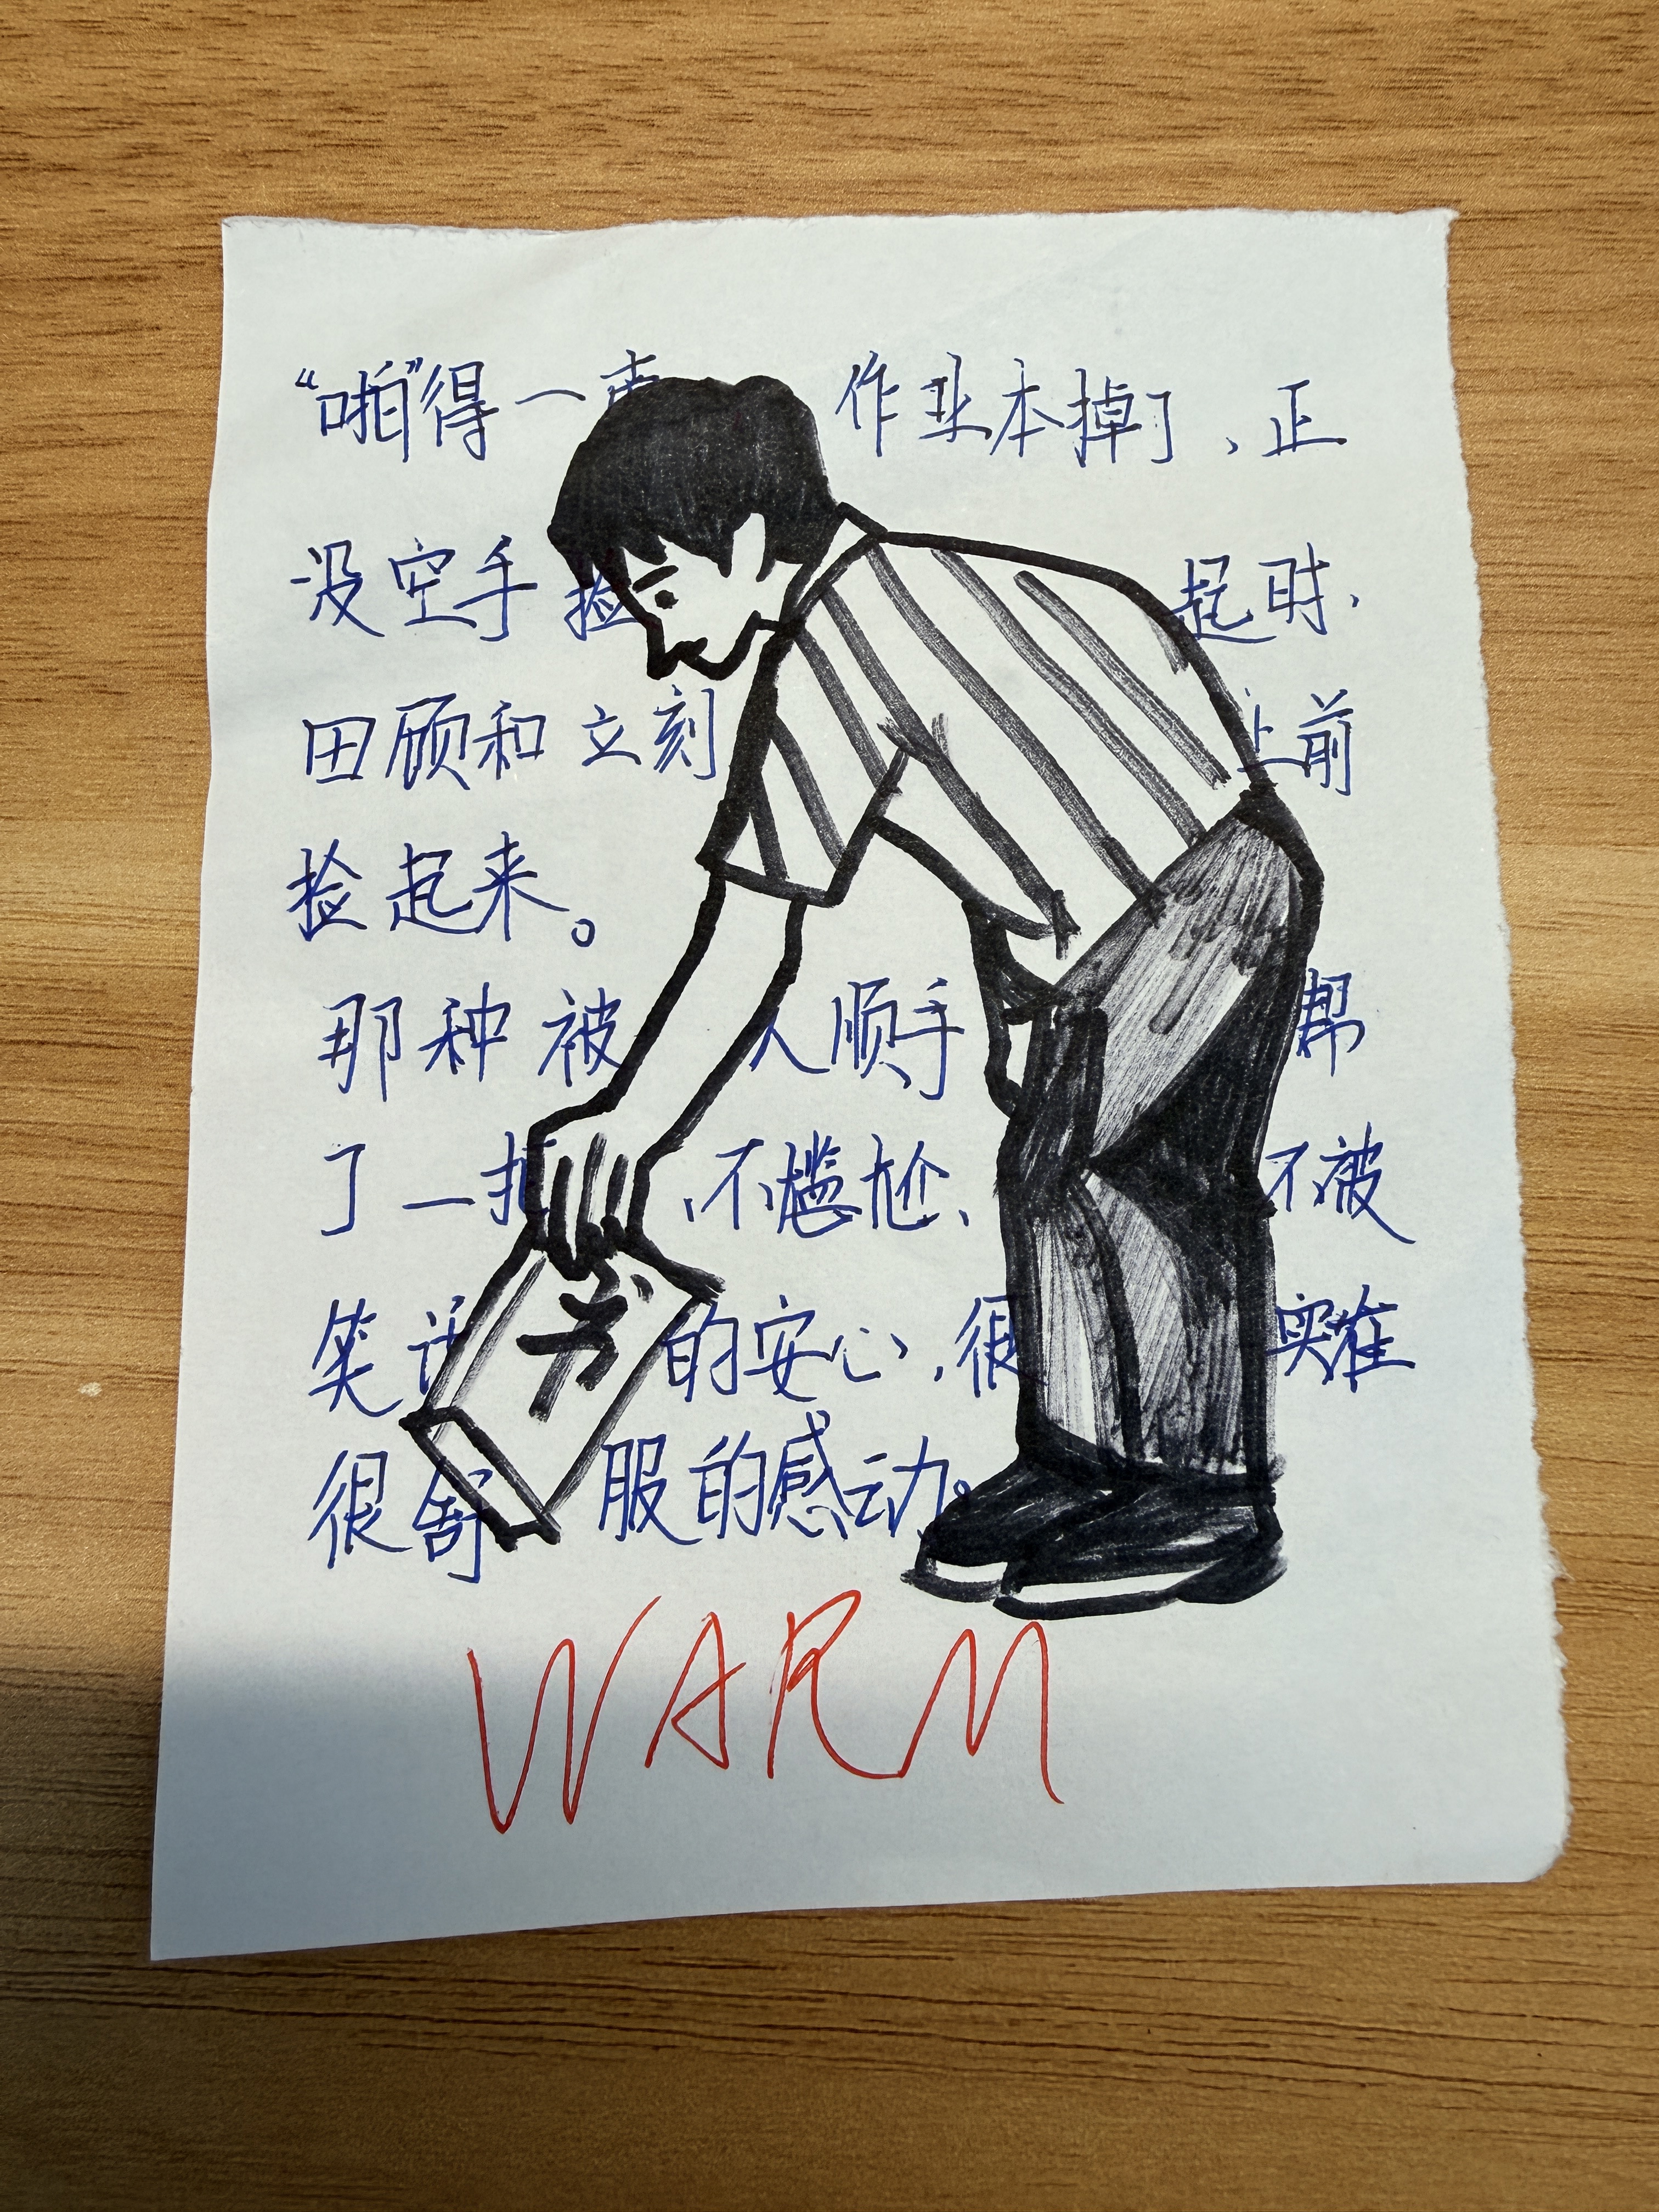 “啪”得一声 作业本掉了、正
没空手捡 起时.
田顾和立刻 上前
捡起来。
那种被 人顺手 帮
了一把 、不尴尬、 不被
笑话 的安心,很 实在
很舒 服的感动。
书
WARM